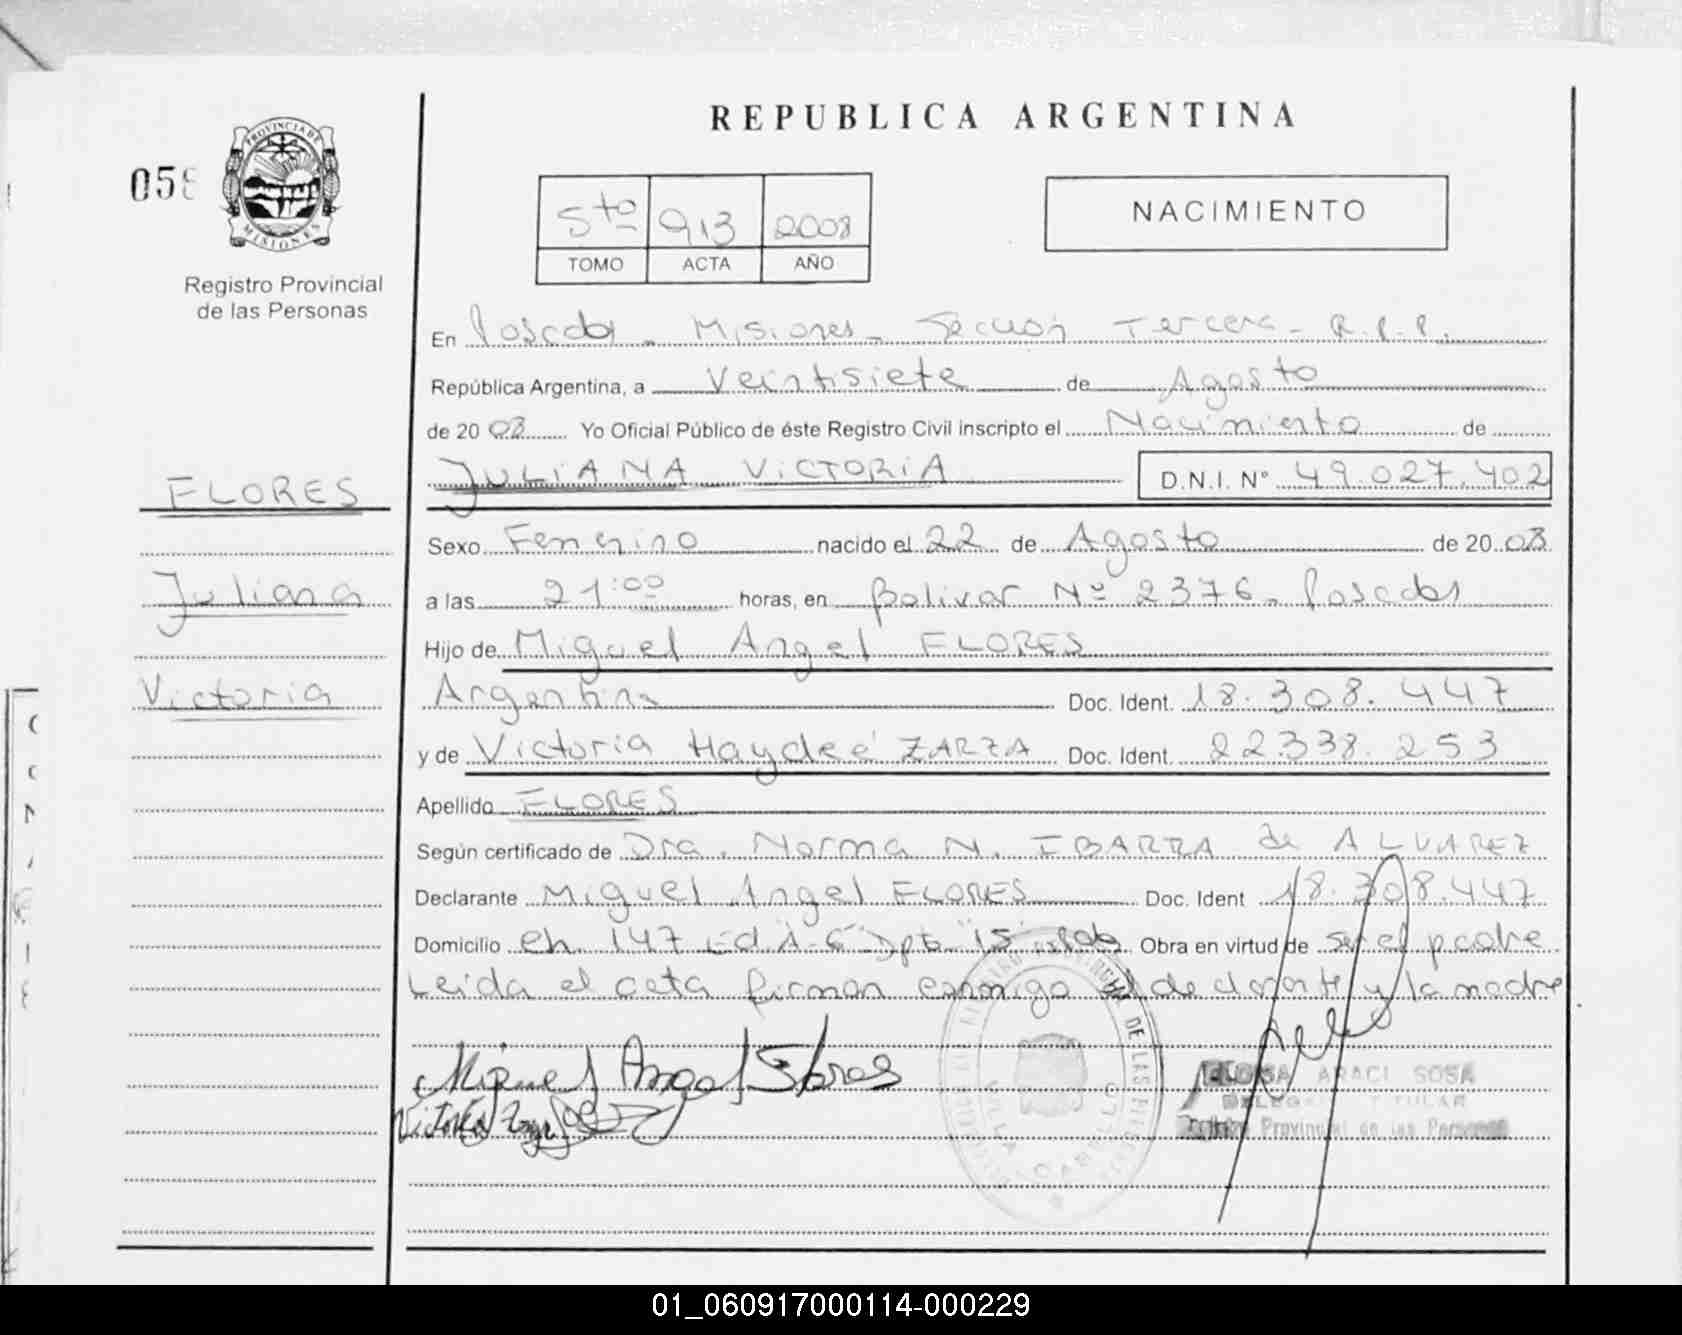 REPUBLICA ARGENTINA
PROVINCIA DE
MISIONES
Registro Provincial
de las Personas
5to 913 2008
TOMO ACTA AÑO
NACIMIENTO
En Posadas - Misiones - Sección Tercera - R.P.P.
República Argentina, a Veintisiete de Agosto
de 20 08 Yo Oficial Público de éste Registro Civil inscripto el Nacimiento de
JULIANA VICTORIA D.N.I. Nº 49.027.402
FLORES
Juliana
Victoria
Sexo Femenino nacido el 22 de Agosto de 20 08
a las 21:00 horas, en Bolivar Nº 2376. Posadas
Hijo de Miguel Angel FLORES
Argentina Doc. Ident. 18.308.447
y de Victoria Haydeé ZARZA Doc. Ident. 22.338.253
Apellido FLORES
Según certificado de Dra. Norma N. IBARRA de ALVAREZ
Declarante Miguel Angel FLORES Doc. Ident 18.308.447
Domicilio Ch. 147 Ed. A-6 Dpto "15" Obra en virtud de ser el padre
Leida el acta firman conmigo el declarante y la madre
Miguel Angel Flores
Victoria
ARACI SOSA
TITULAR
Provincial de las Personas
01_060917000114-000229